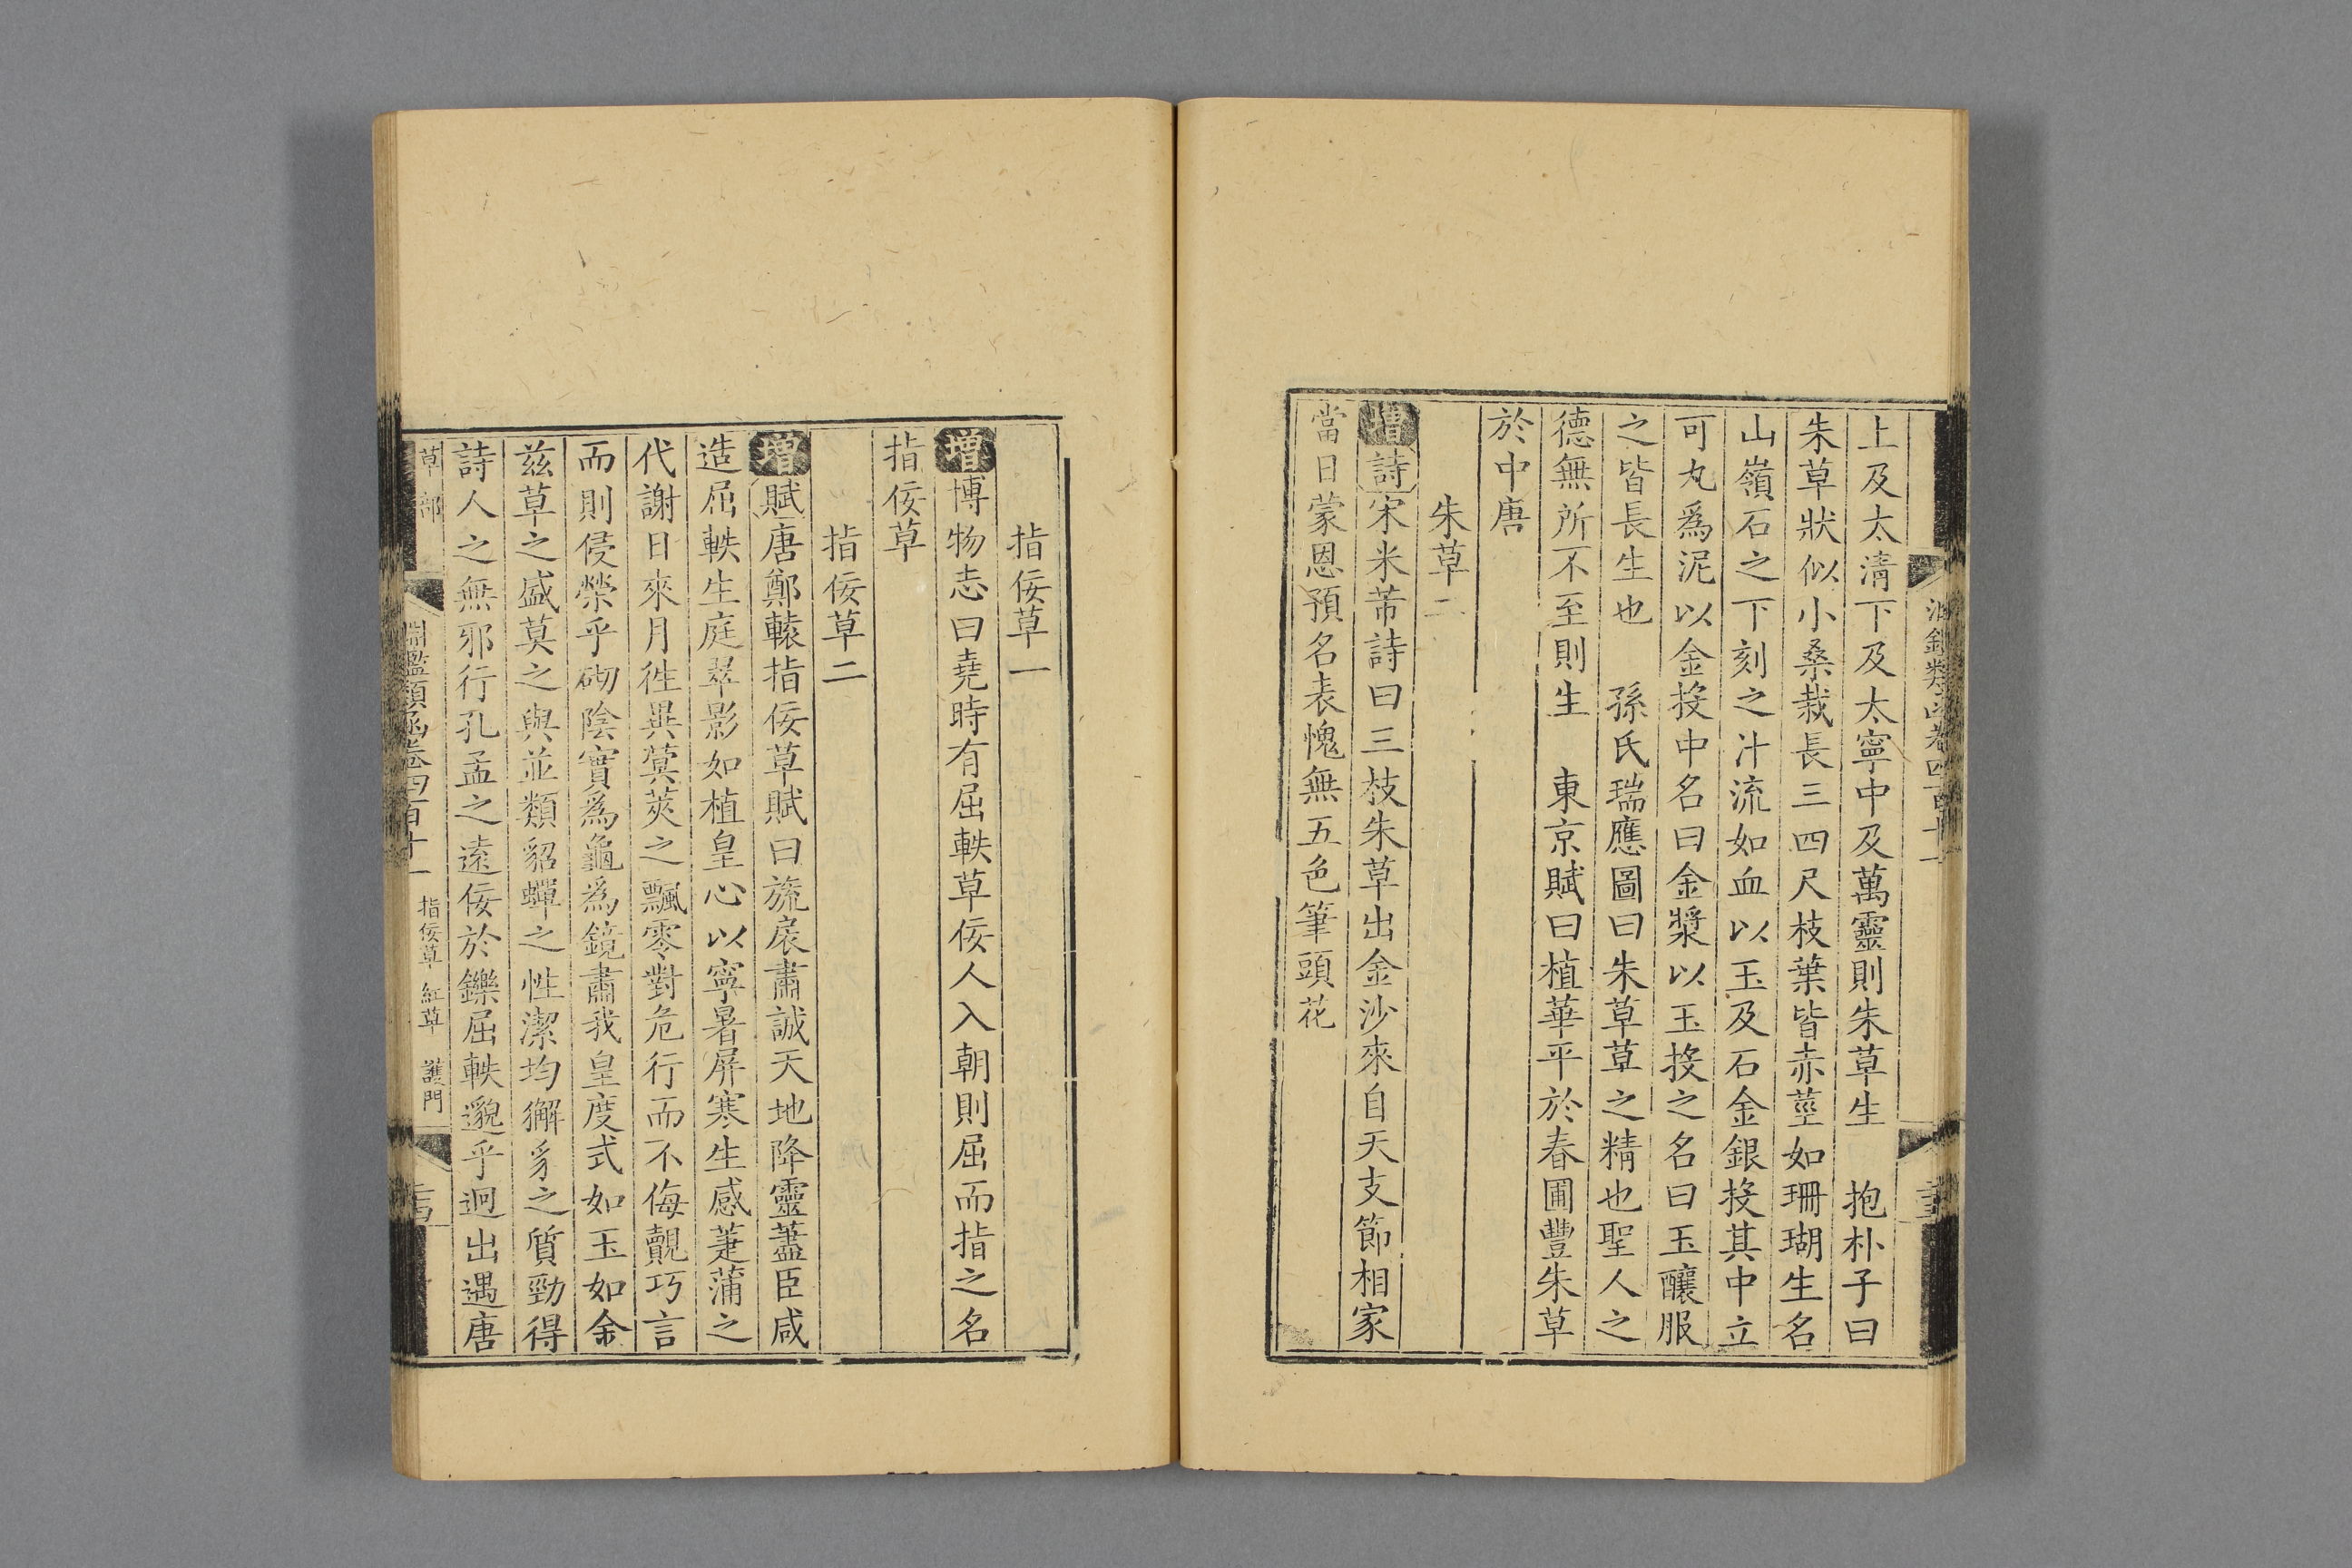 上及太淸下及太寧中及萬靈則朱草生　抱朴子曰
朱草狀似小桑栽長三四尺枝葉皆赤莖如珊瑚生名
山嶺石之下刻之汁流如血以玉及石金銀投其中立
可丸爲泥以金投中名曰金漿以玉投之名曰玉釀服
之皆長生也　孫氏瑞應圖曰朱草草之精也聖人之
德無所不至則生　東京賦曰植華平於春圃豐朱草
於中唐
朱草二
增詩宋米芾詩曰三枝朱草出金沙來自天支節相家
當日蒙恩預名表愧無五色筆頭花
指佞草一
增博物志曰堯時有屈軼草佞人入朝則屈而指之名
指佞草
指佞草二
增賦唐鄭轅指佞草賦曰旒扆肅誠天地降靈藎臣咸
造屈軼生庭翠影如植皇心以寧暑屏寒生感萐蒲之
代謝日來月徃異蓂莢之飄零對危行而不侮覿巧言
而則侵縈乎砌陰實爲龜爲鏡肅我皇度式如玉如金
兹草之盛莫之與並類貂蟬之性潔均獬豸之質勁得
詩人之無邪行孔孟之遠佞於鑠屈軼邈乎迥出遇唐
草部
淵鑑類函卷四百十一
指佞草　紅草　護門